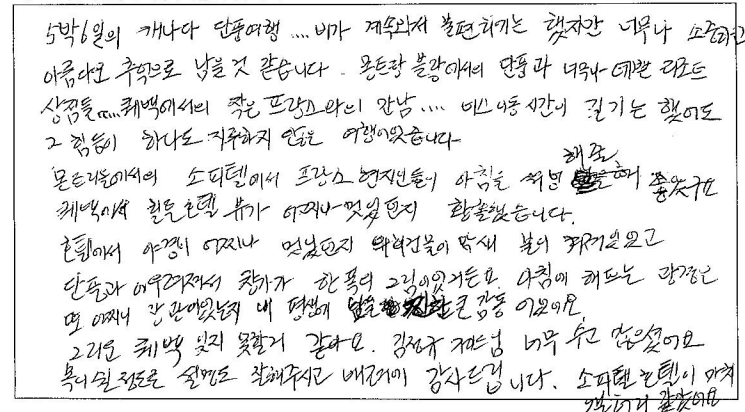 5박6일의 캐나다 단풍여행 .... 비가 계속와서 불편하기는 했지만 너무나 소중하고
아름다운 추억으로 남을것 같습니다. 몽트랑 블랑에서의 단풍과 너무나 예쁜 리조트
상점들.... 퀘백에서의 작은 프랑스와의 만남.... 버스이동시간이 길기는 했어도
그 힘듬이 하나도 지루하지 않은 여행이었습니다
몬트리올에서의 소피텔에서 프랑스 현지인들이 아침을 서빙 해주 좋았구요
퀘백에서 힐튼호텔 뷰가 어찌나 멋있던지 황홀했습니다.
호텔에서 야경이 어찌나 멋있던지 밤새 불이 켜져있었고
단풍과 어우러져서 창가가 한폭의 그림이었거든요. 아침에 해뜨는 광경은
또 어찌나 장관이었는지 내 평생에 큰 감동 이었어요.
그리고 퀘백 잊지 못할거 같아요. 김정규 가이드님 너무 수고 많으셨어요
목이 쉴정도로 설명도 잘해주시고 배려에 감사드립니다. 소피텔 호텔이 마치
같았어요